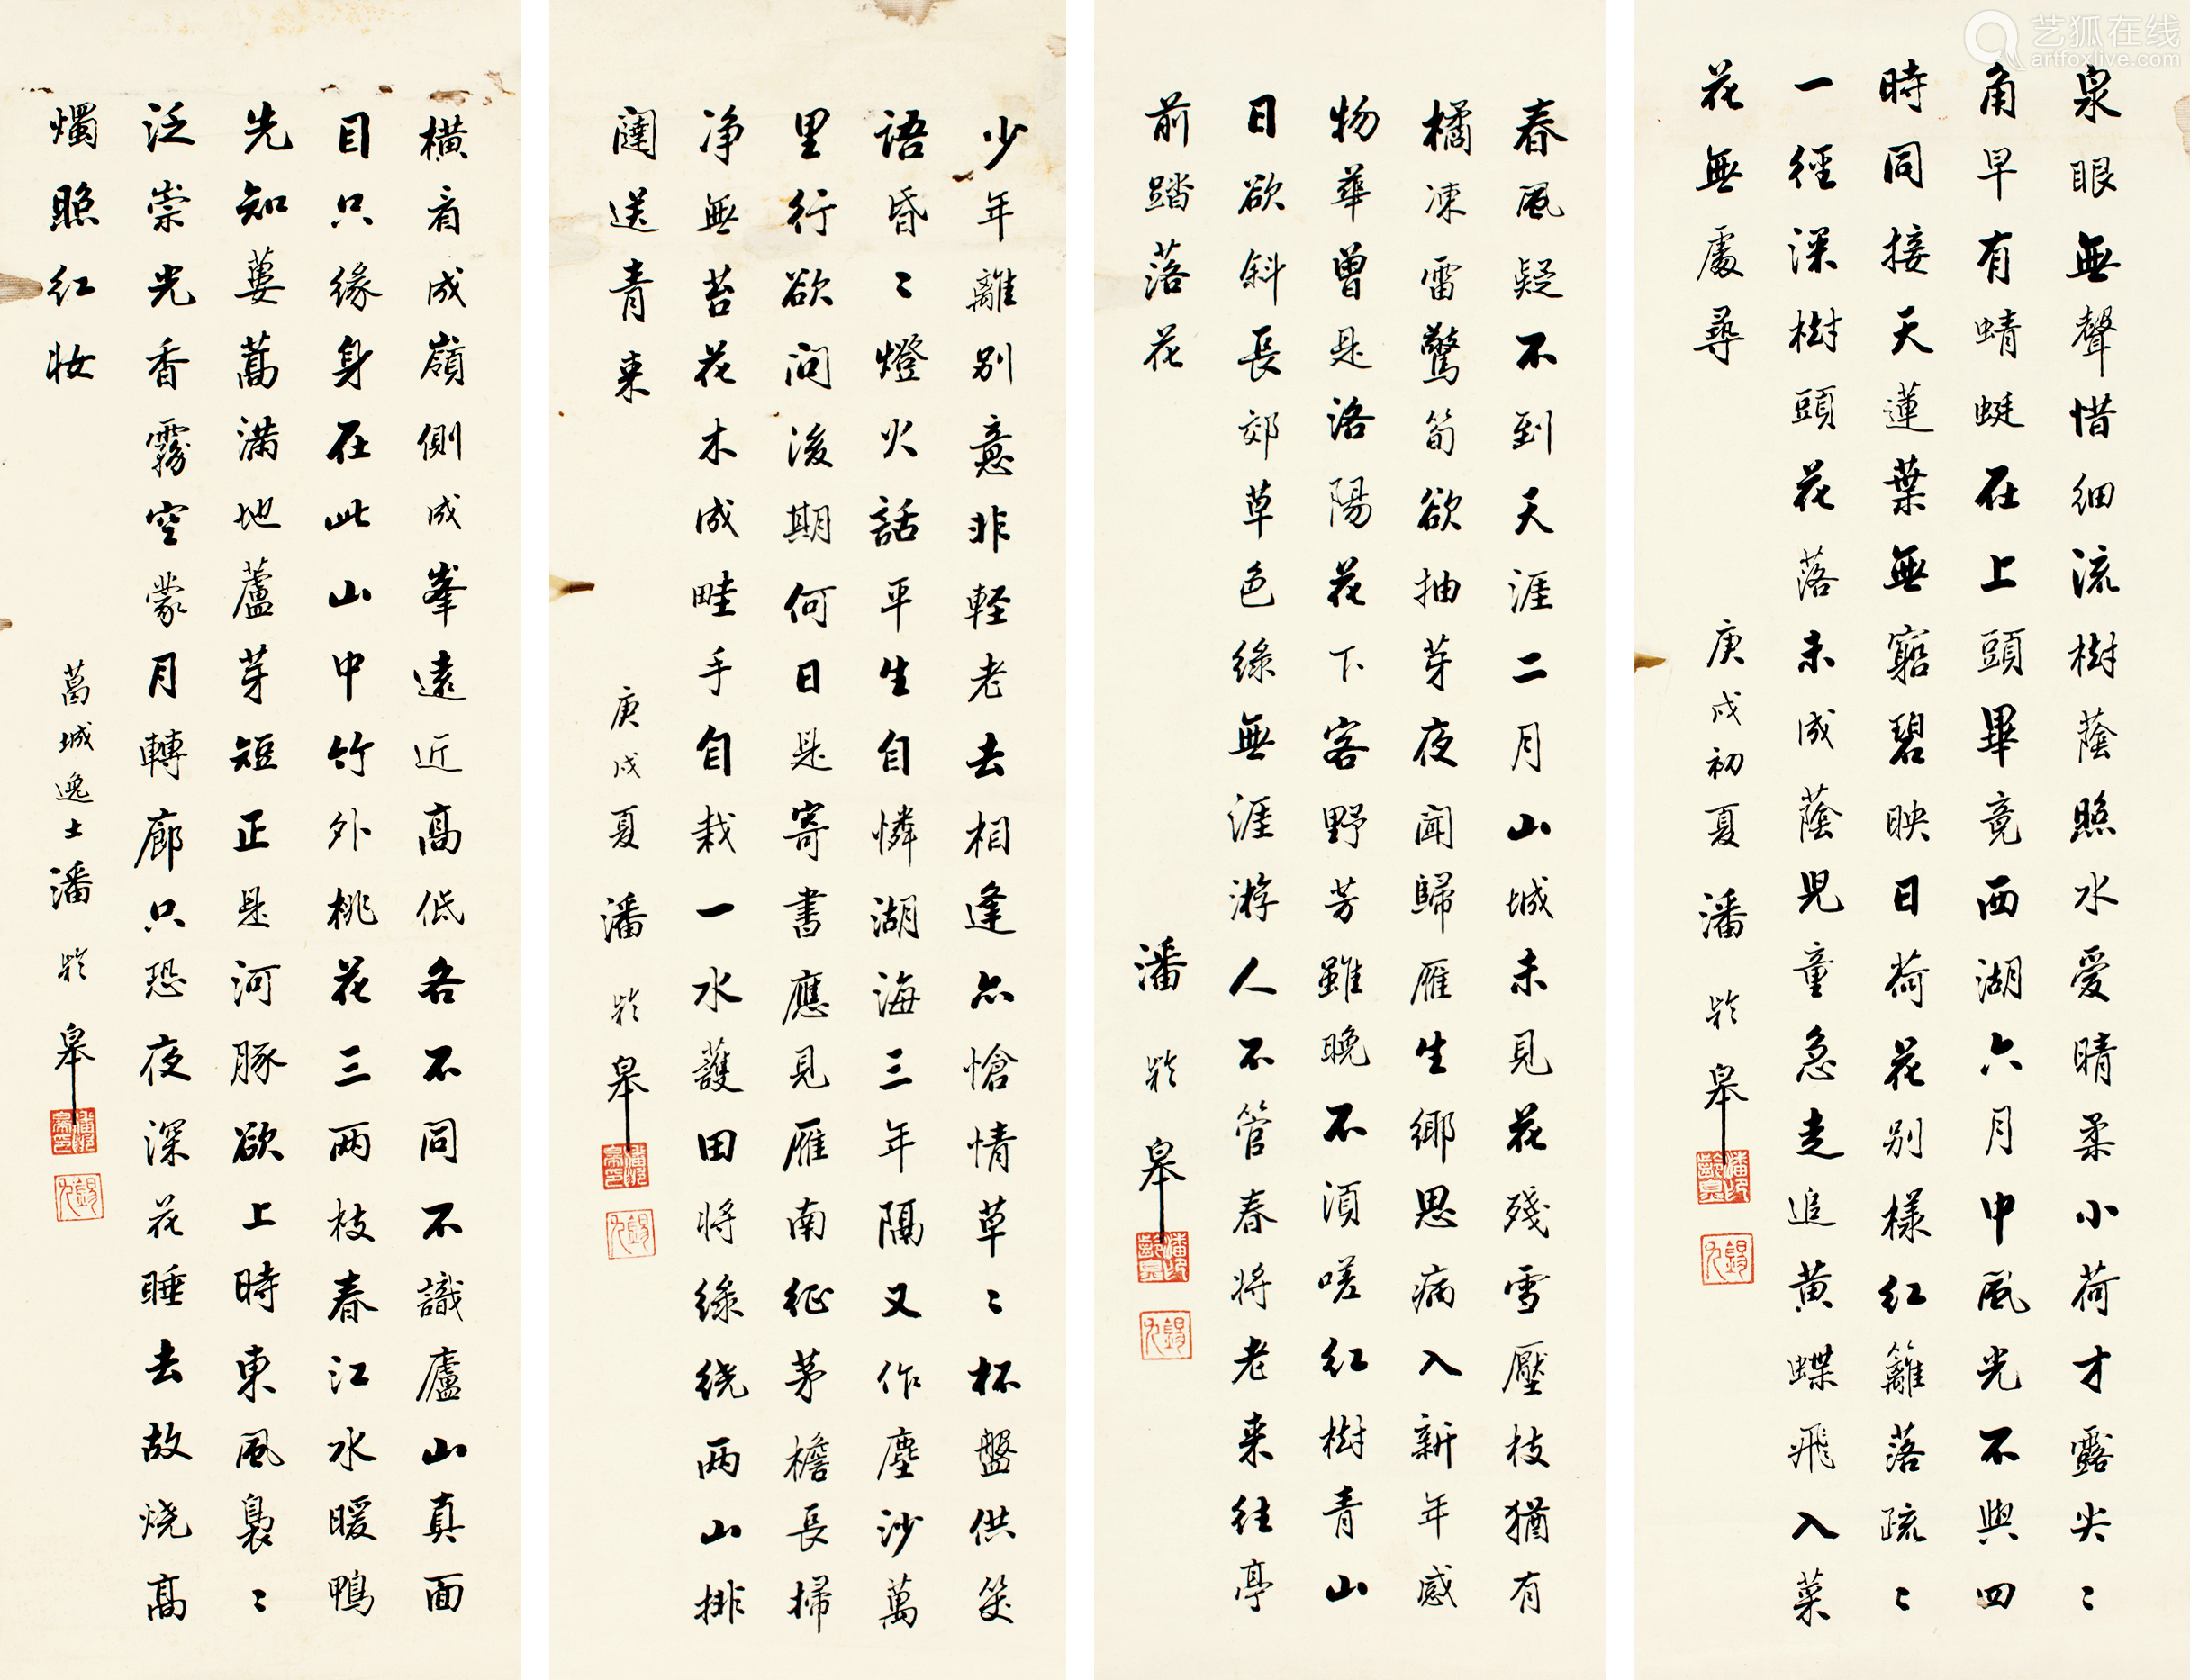 泉眼無聲惜細流樹蔭照水愛晴柔小荷才露尖〻
角早有蜻蜓在上頭畢竟西湖六月中風光不與四
時同接天蓮葉無窮碧映日荷花別樣紅籬落疏〻
一徑深樹頭花落未成蔭兒童急走追黃蝶飛入菜
花無處尋
庚戌初夏 潘齡皋
春風疑不到天涯二月山城未見花殘雪壓枝猶有
橘凍雷驚筍欲抽芽夜聞歸雁生鄉思病入新年感
物華曾是洛陽花下客野芳雖晚不須嗟紅樹青山
日欲斜長郊草色綠無涯游人不管春將老来往亭
前踏落花
潘齡皋
少年離別意非輕老去相逢亦愴情草〻杯盤供笑
語昏〻燈火話平生自憐湖海三年隔又作塵沙萬
里行欲问後期何日是寄書應見雁南征茅檐長掃
净無苔花木成畦手自栽一水護田将綠绕两山排
闥送青来
庚戌夏 潘齡皋
橫看成嶺側成峯遠近高低各不同不識廬山真面
目只缘身在此山中竹外桃花三两枝春江水暖鴨
先知蔞蒿满地蘆芽短正是河豚欲上時東風裊〻
泛崇光香霧空蒙月轉廊只恐夜深花睡去故烧高
燭照红妆
葛城逸士潘齡皋
艺狐在线
artfoxlive.com